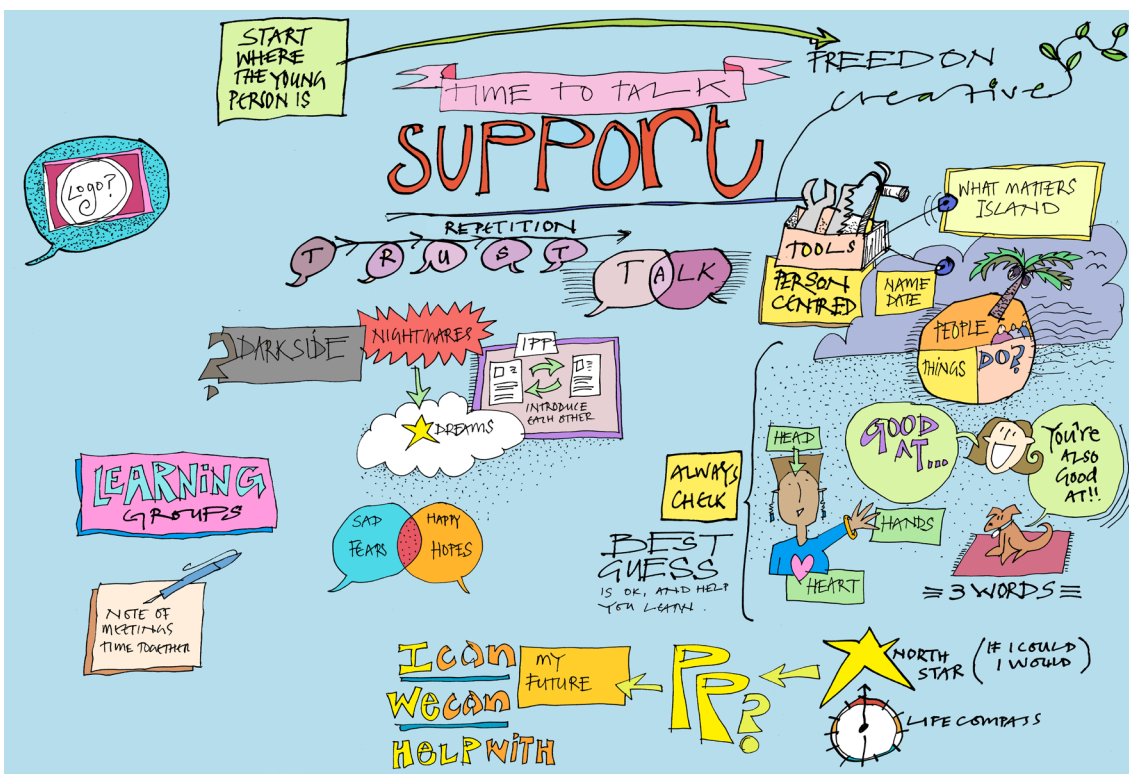 START
WHERE
THE YOUNG
PERSON IS
FREEDON
creative
TIME TO TALK
SUPPORT
Logo?
REPETITION
T R U S T
TALK
TOOLS
PERSON
CENTRED
WHAT MATTERS
ISLAND
NAME
DATE
PEOPLE
THINGS
DO?
DARKSIDE
NIGHTMARES
DREAMS
IPP
INTRODUCE
EACH OTHER
LEARNING
GROUPS
NOTE OF
MEETINGS
TIME TOGETHER
SAD
FEARS
HAPPY
HOPES
ALWAYS
CHECK
BEST
GUESS
IS OK, AND HELP
YOU LEARN.
HEAD
HANDS
HEART
GOOD
AT...
YOU'RE
ALSO
GOOD
AT!!
3 WORDS
I can
We can
HELP WITH
MY
FUTURE
PPR?
NORTH
STAR
(IF I COULD
I WOULD)
LIFE COMPASS